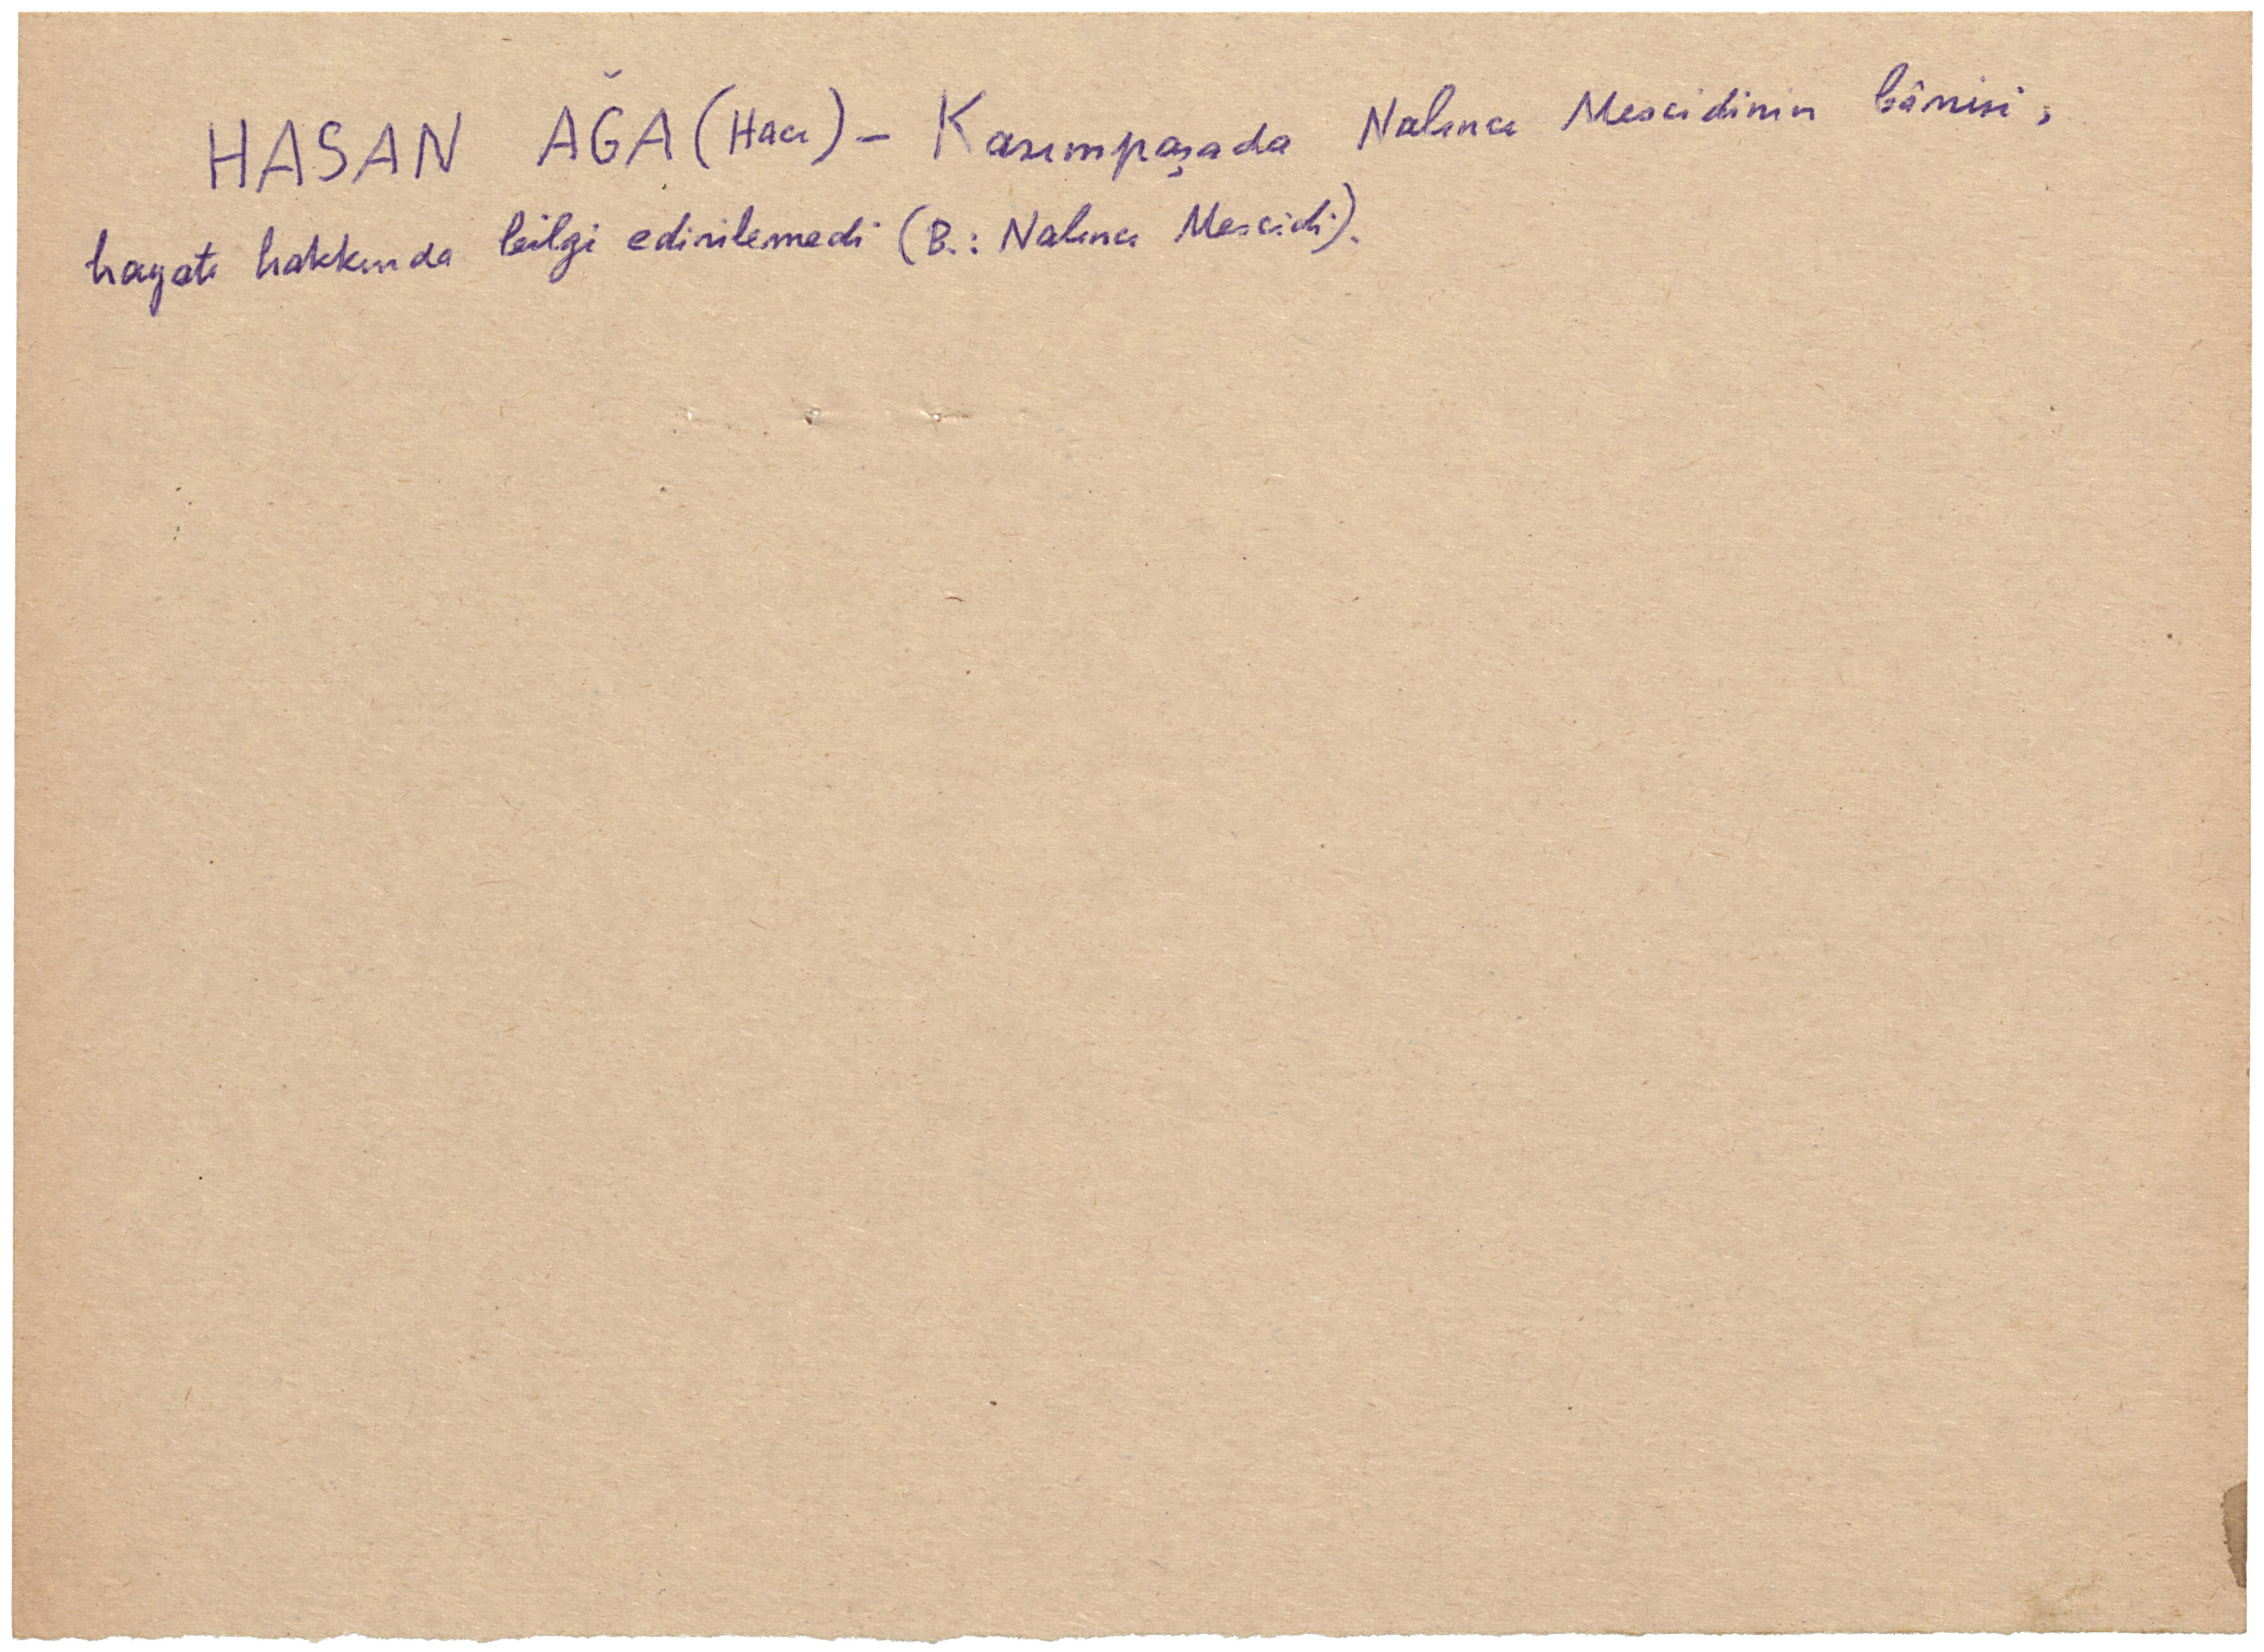 HASAN AĞA (Hacı) – Kasımpaşada Nalıncı Mescidinin bânisi,
hayatı hakkında bilgi edinilemedi (B.: Nalıncı Mescidi).